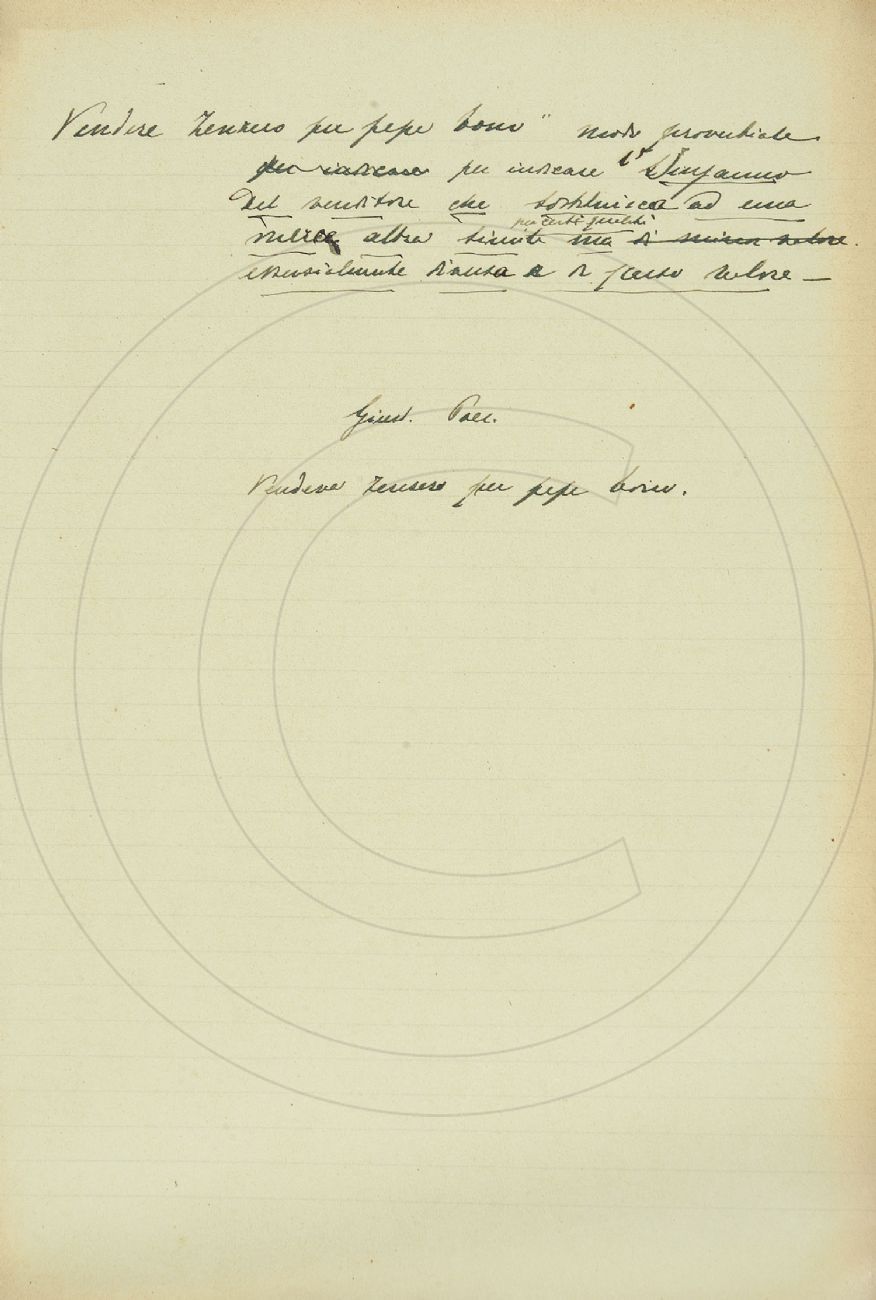 Vendere zenzero per pepe bono" modo proverbiale
per indicare per indicare l'inganno
del venditore che sostituisca ad una
per certe qualità
merce altra simile ma di minor valore.
essenzialmente diversa e di valore —
Giusti. Poes.
Vendeva zenzero per pepe bono.